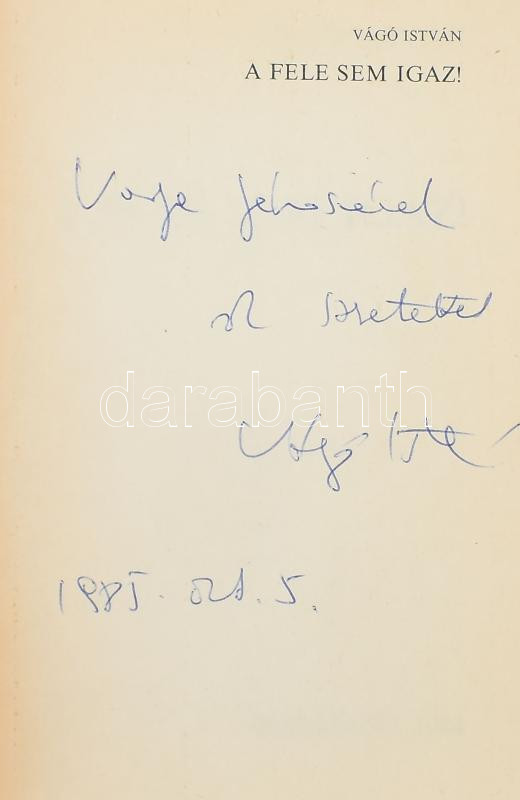 VÁGÓ ISTVÁN
A FELE SEM IGAZ!
Varga
ok szeretettel
darabanth
Vágó István
1985. okt. 5.